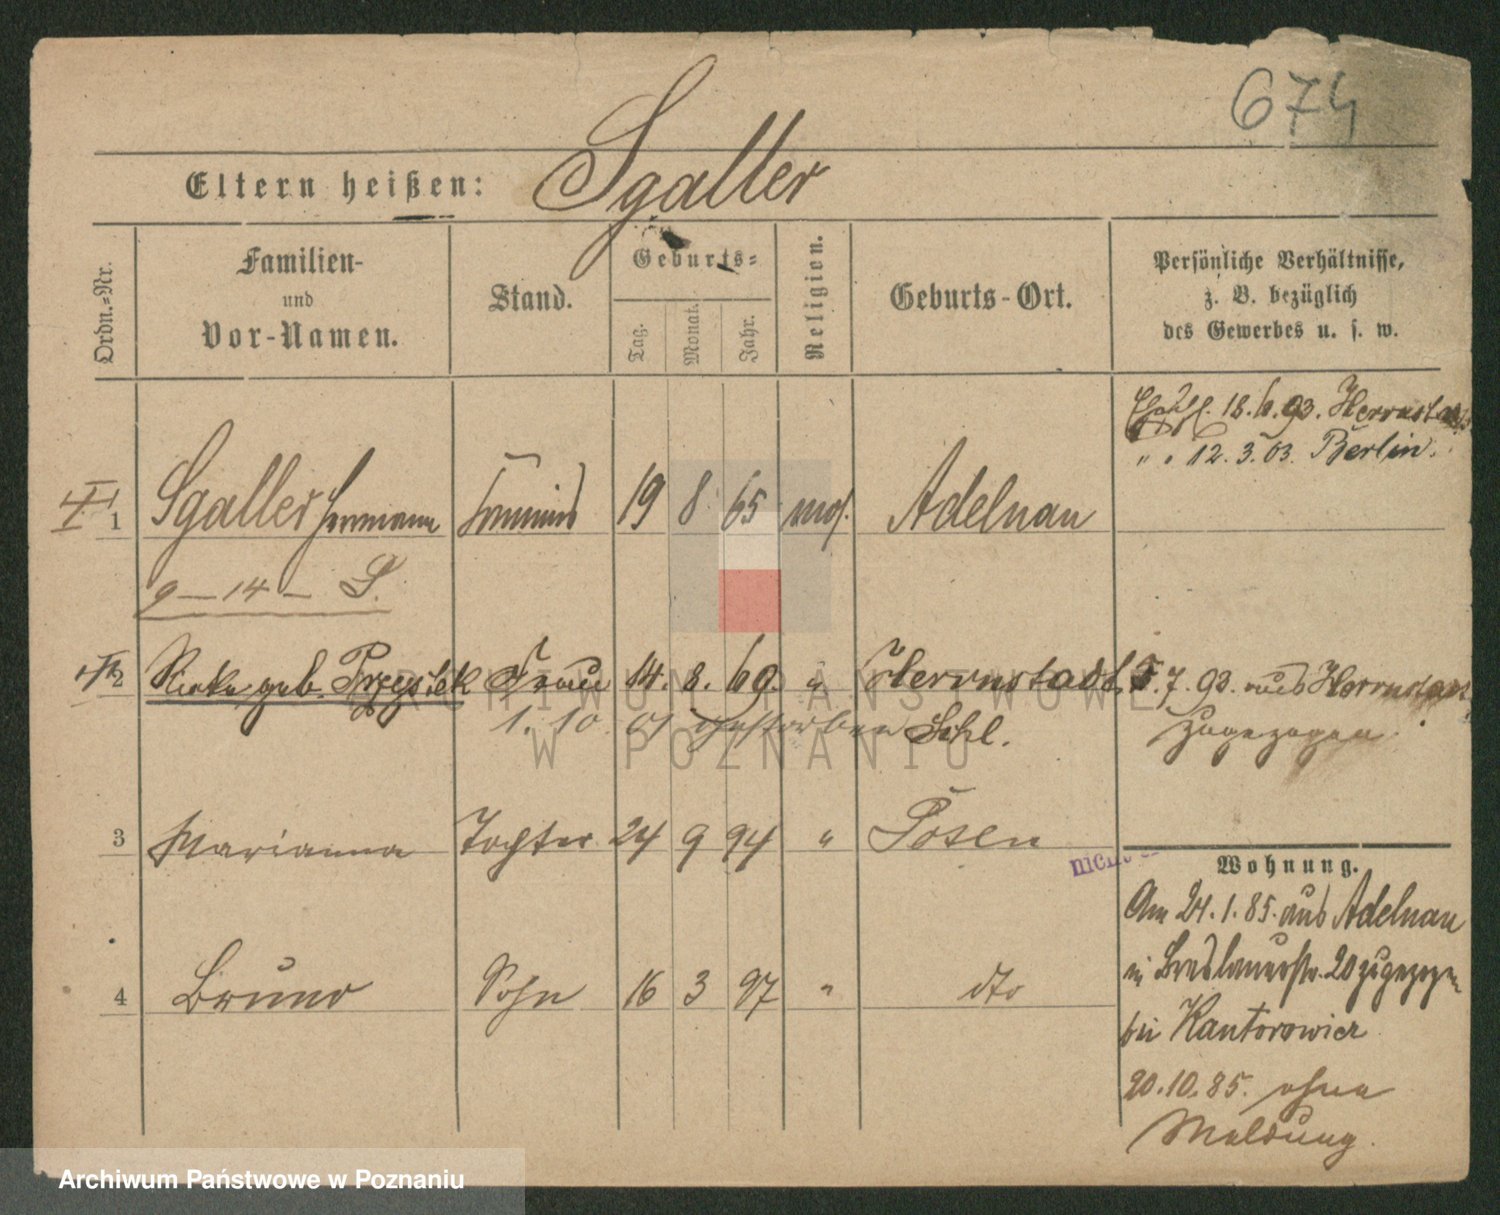 674
Eltern heißen: Sgaller
Ordn.=Nr.
Familien-
und
Vor-Namen.
Stand.
Geburts=
Tag.
Monat.
Jahr.
Religion.
Geburts-Ort.
Persönliche Verhältnisse,
z. B. bezüglich
des Gewerbes u. s. w.
18.6.93. Herrnstadt
" " 12.3.03. Berlin.
1 Sgaller Hermann Commis 19 8 65 mos. Adelnau
9 — 14 — S.
2 geb. Frau 14. 8. 69. " Herrnstadt
7. 93. aus Herrnstadt
1. 10. 01 gestorben Schl.
zugezogen.
3 Marianna Tochter 24 9 94 " Posen
nicht
Wohnung.
Am 24.1.85. aus Adelnau
in Breslauerstr. 20 zugezogen
bei Kantorowicz
4 Bruno Sohn 16 3 97 " dto
20.10.85. ohne
Meldung.
ARCHIWUM PAŃSTWOWE
W POZNANIU
Archiwum Państwowe w Poznaniu